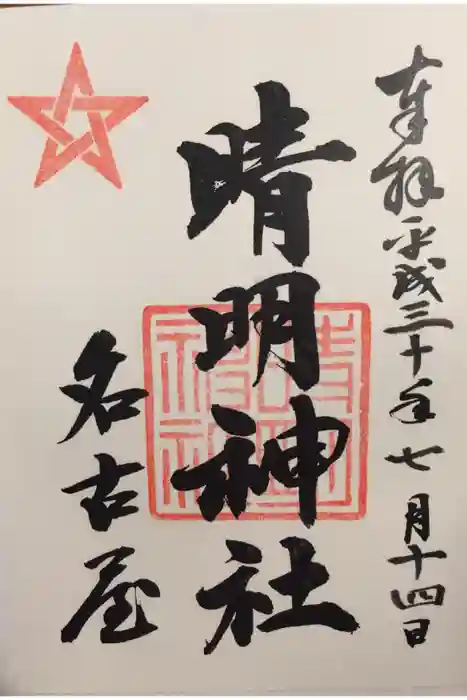 奉拝 平成三十年七月十四日
晴明神社
名古屋
晴明
神社